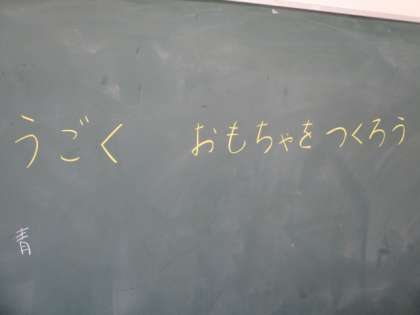 うごく　おもちゃをつくろう
青